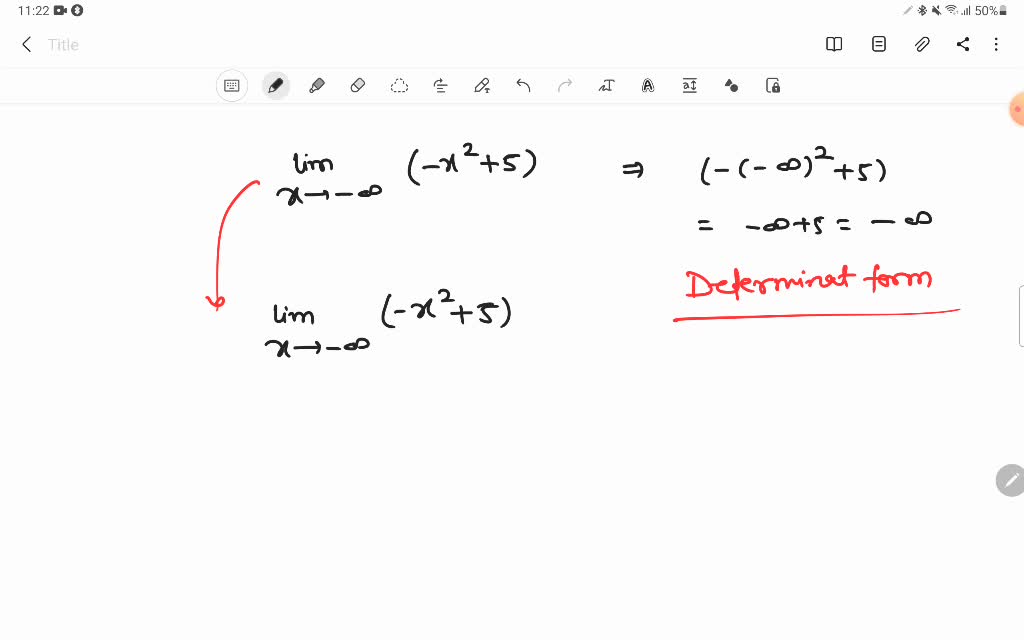 11:22 50%
Title
lim (-x²+5) ⇒ (-(-∞)²+5)
x→-∞
= -∞+5 = -∞
Determinat form
lim (-x²+5)
x→-∞